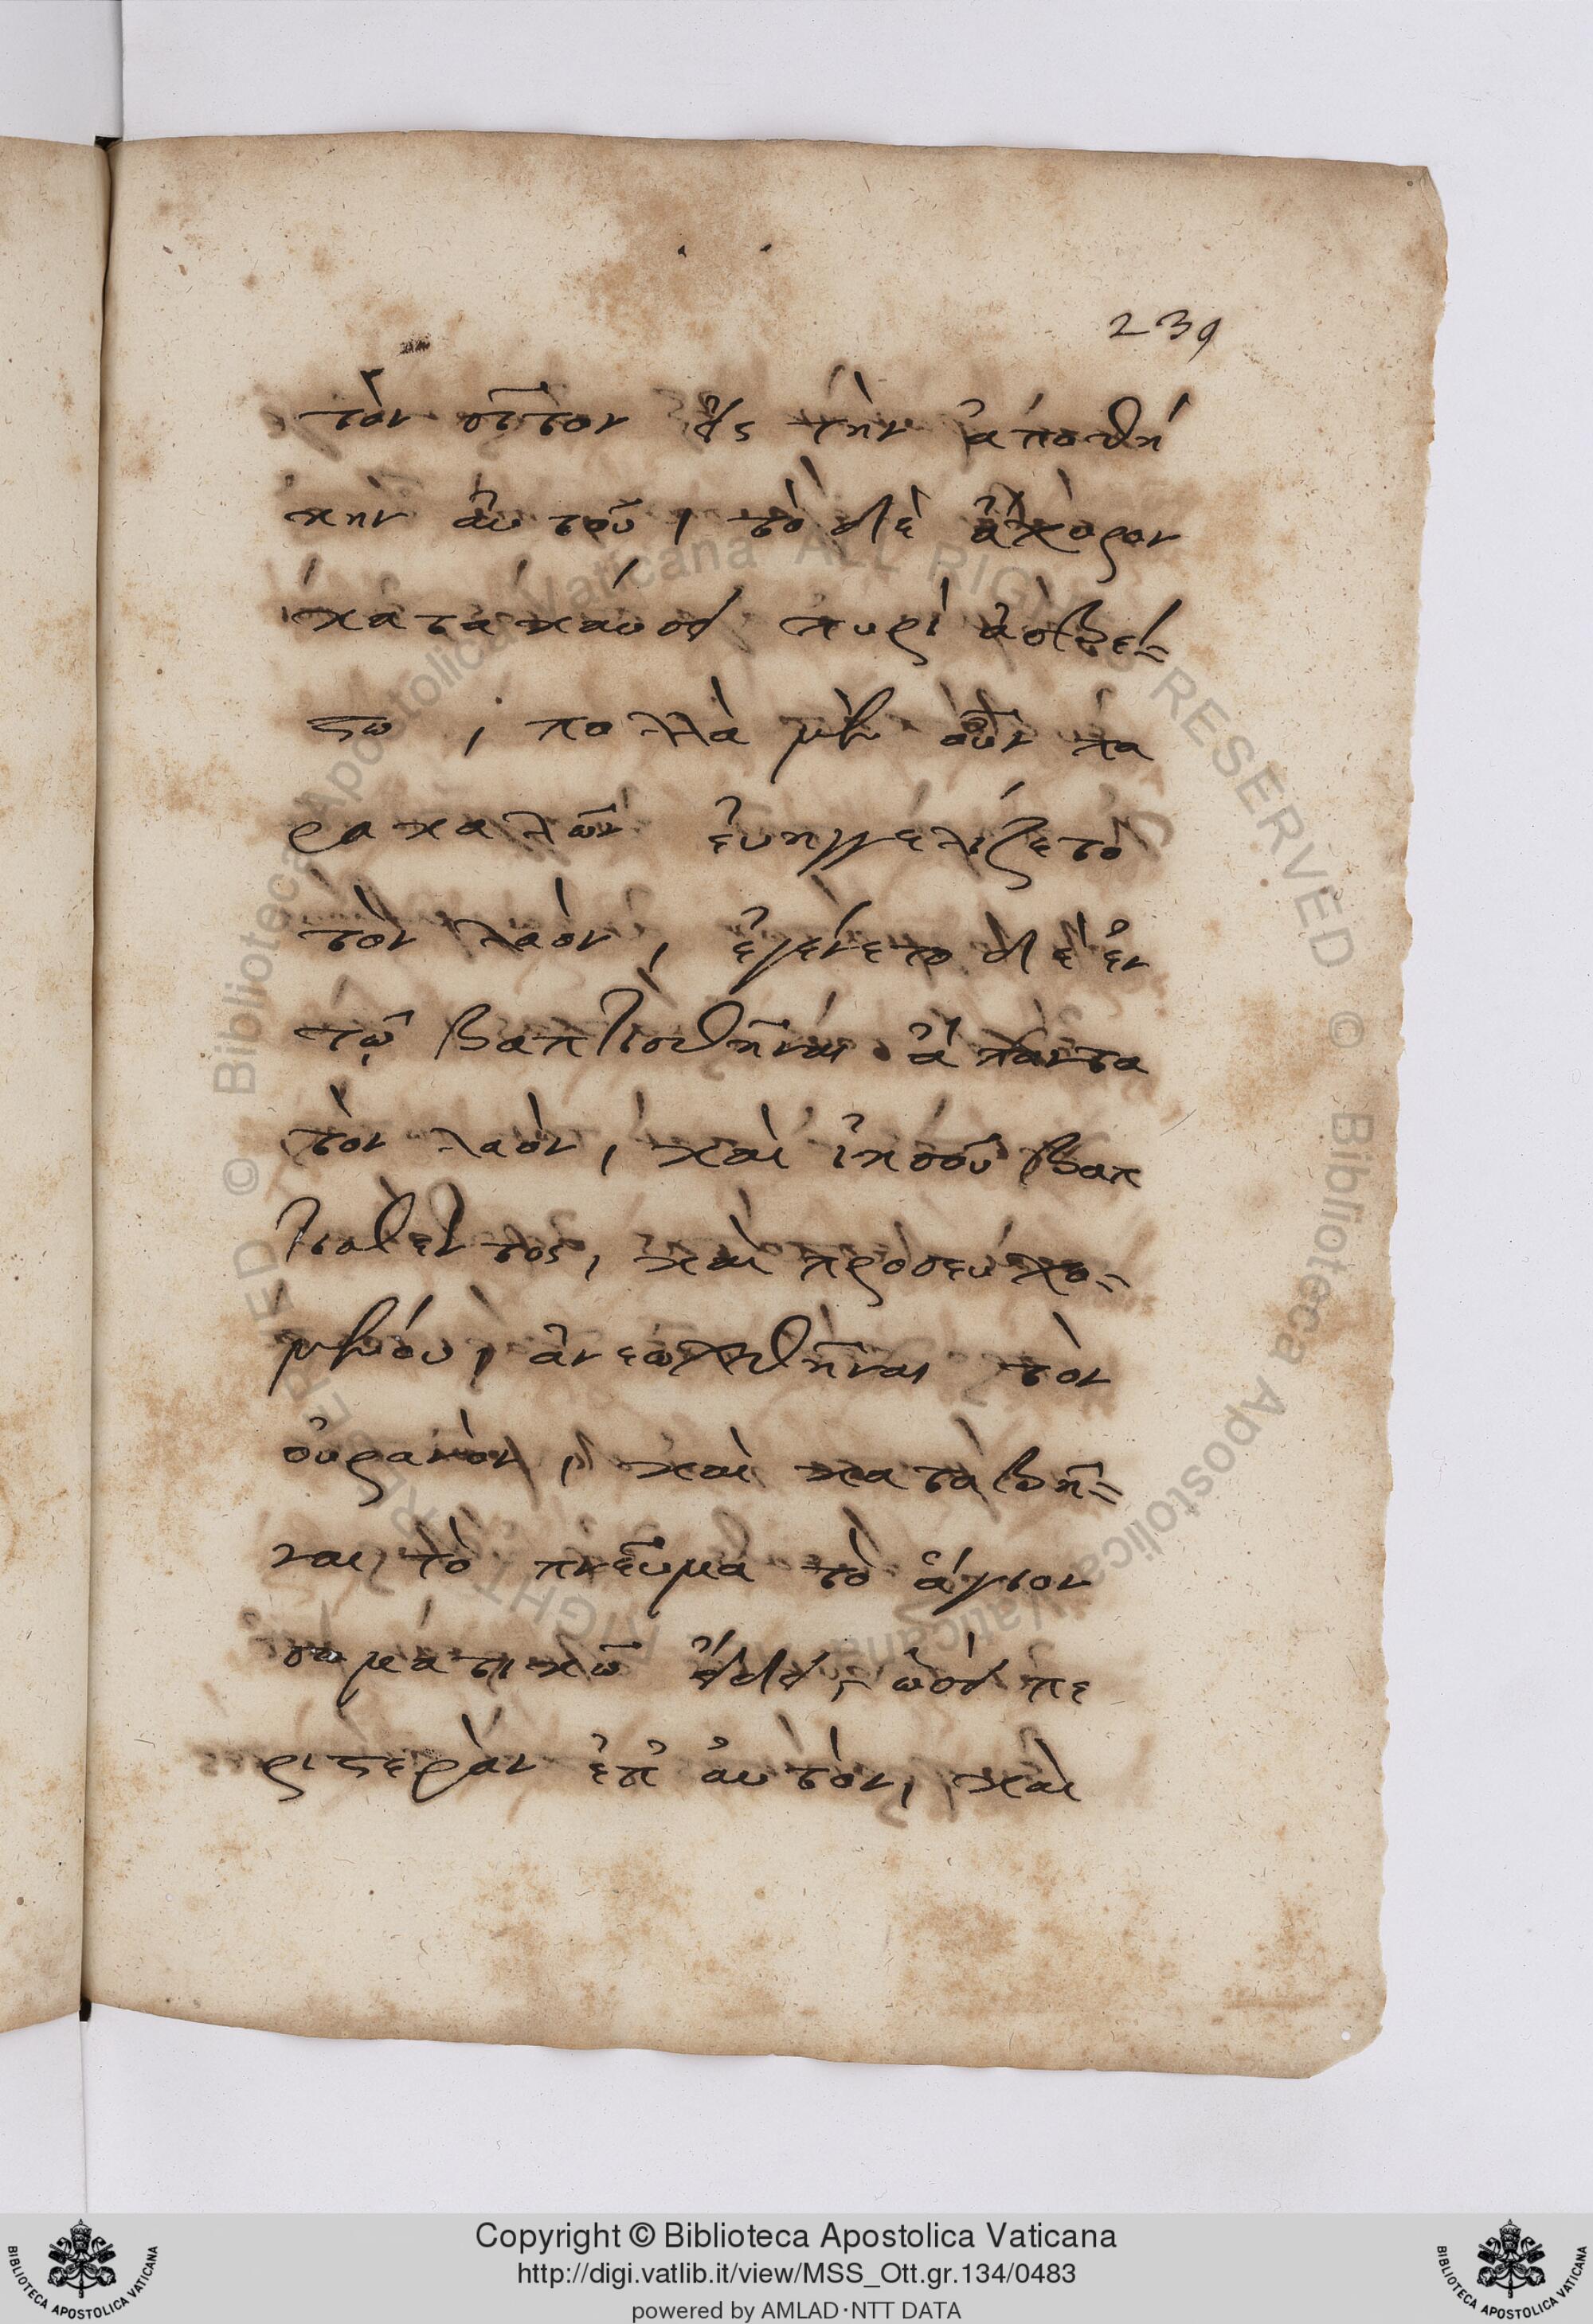 239
τὸν σῖτον εἰς τὴν ἀποθή
κην αὐτοῦ, τὸ δὲ ἄχυρον
κατακαύσει πυρὶ ἀσβέ=
στω, πολλὰ μὲν οὖν πα
ρακαλῶν εὐηγγελίζετο
τὸν λαόν, ἐγένετο δὲ ἐν
τῷ βαπτισθῆναι ἅπαντα
τὸν λαὸν, καὶ ἰησοῦ βαπ
τισθέντος, καὶ προσευχο=
μένου, ἀνεωχθῆναι τὸν
οὐρανὸν, καὶ καταβῆ=
ναι τὸ πνεῦμα τὸ ἅγιον
σωματικῶ εἴδει, ὡσεὶ πε
ριστερὰν ἐπ' αὐτὸν, καὶ
© Biblioteca Apostolica Vaticana ALL RIGHTS RESERVED © Biblioteca Apostolica Vaticana ALL RIGHTS RESERVED
Copyright © Biblioteca Apostolica Vaticana
http://digi.vatlib.it/view/MSS_Ott.gr.134/0483
powered by AMLAD·NTT DATA
BIBLIOTECA APOSTOLICA VATICANA
BIBLIOTECA APOSTOLICA VATICANA